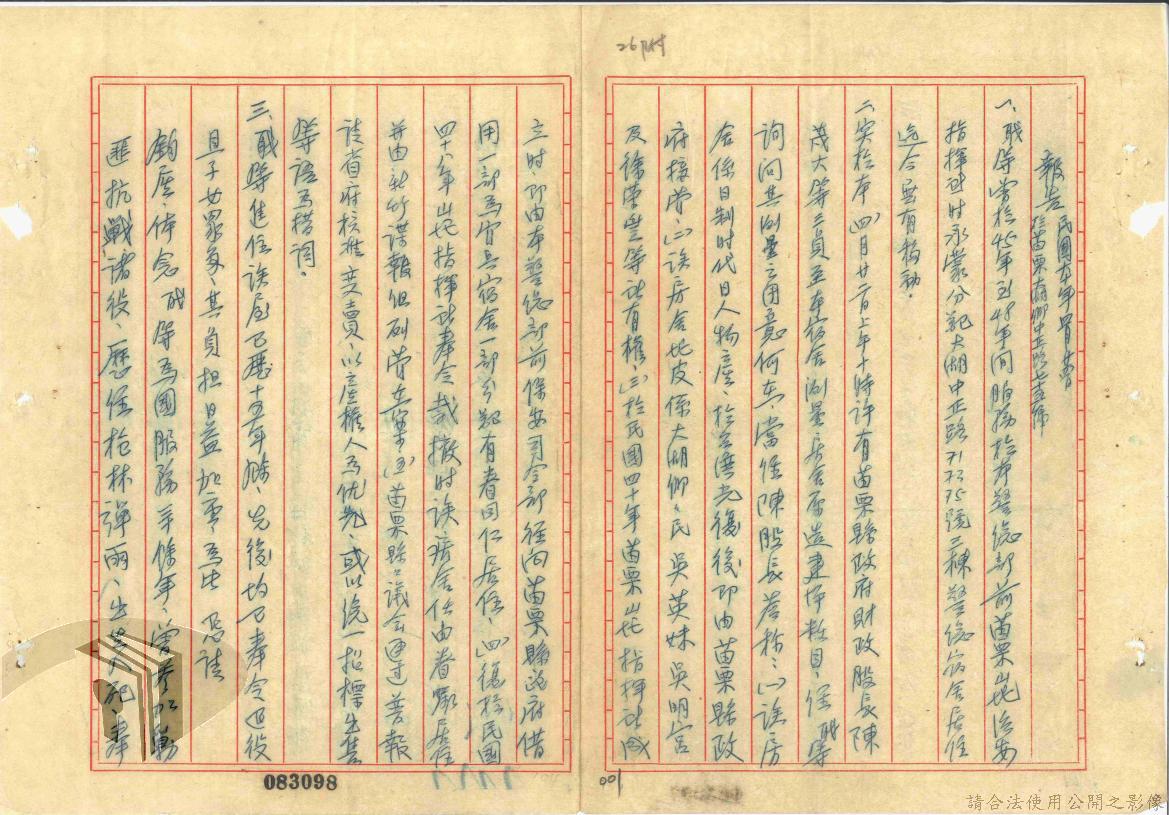 26附
報告 民國五年四月廿八日
於苗栗大湖鄉中正路七十五號
一、職等曾於45年至48年間服務於本警總部前苗栗山地治安
指揮部時承蒙分配大湖中正路71、73、75號三棟警總宿舍居住
迄今無有移動。
二、突於本(四)月廿二日上午十時許有苗栗縣政府財政股長陳
茂大等三員至本宿舍測量房舍原造建坪數目，經職等
詢問其測量之用意何在，當經陳股長答稱：(一)該房
舍係日制時代日人物產，於台灣光復後即由苗栗縣政
府接管，(二)該房舍地皮係大湖鄉鄉民吳英妹吳明宮
及徐榮興等計有權，(三)於民國四十年苗栗山地指揮部成
立時，即由本警總部前保安司令部徑向苗栗縣政府借
用一部為官兵宿舍一部分配有眷同仁居住，(四)復於民國
四十八年山地指揮部奉令裁撤時該宿舍仍由眷屬居住
并由新竹諜報組列管在案，(五)苗栗縣縣議會通過並報
請省府核准變賣，以產權人為優先，或以統一招標出售
等語為措詞。
三、職等進住該屋已歷十五年餘，先後均已奉令退役
且子女眾多，其負担日益加重，為此 懇請
鈞座，体念職等為國服務半條年，曾參加勦
匪抗戰諸役，歷經槍林彈雨，出生入死，奉
083098
001
請合法使用公開之影像